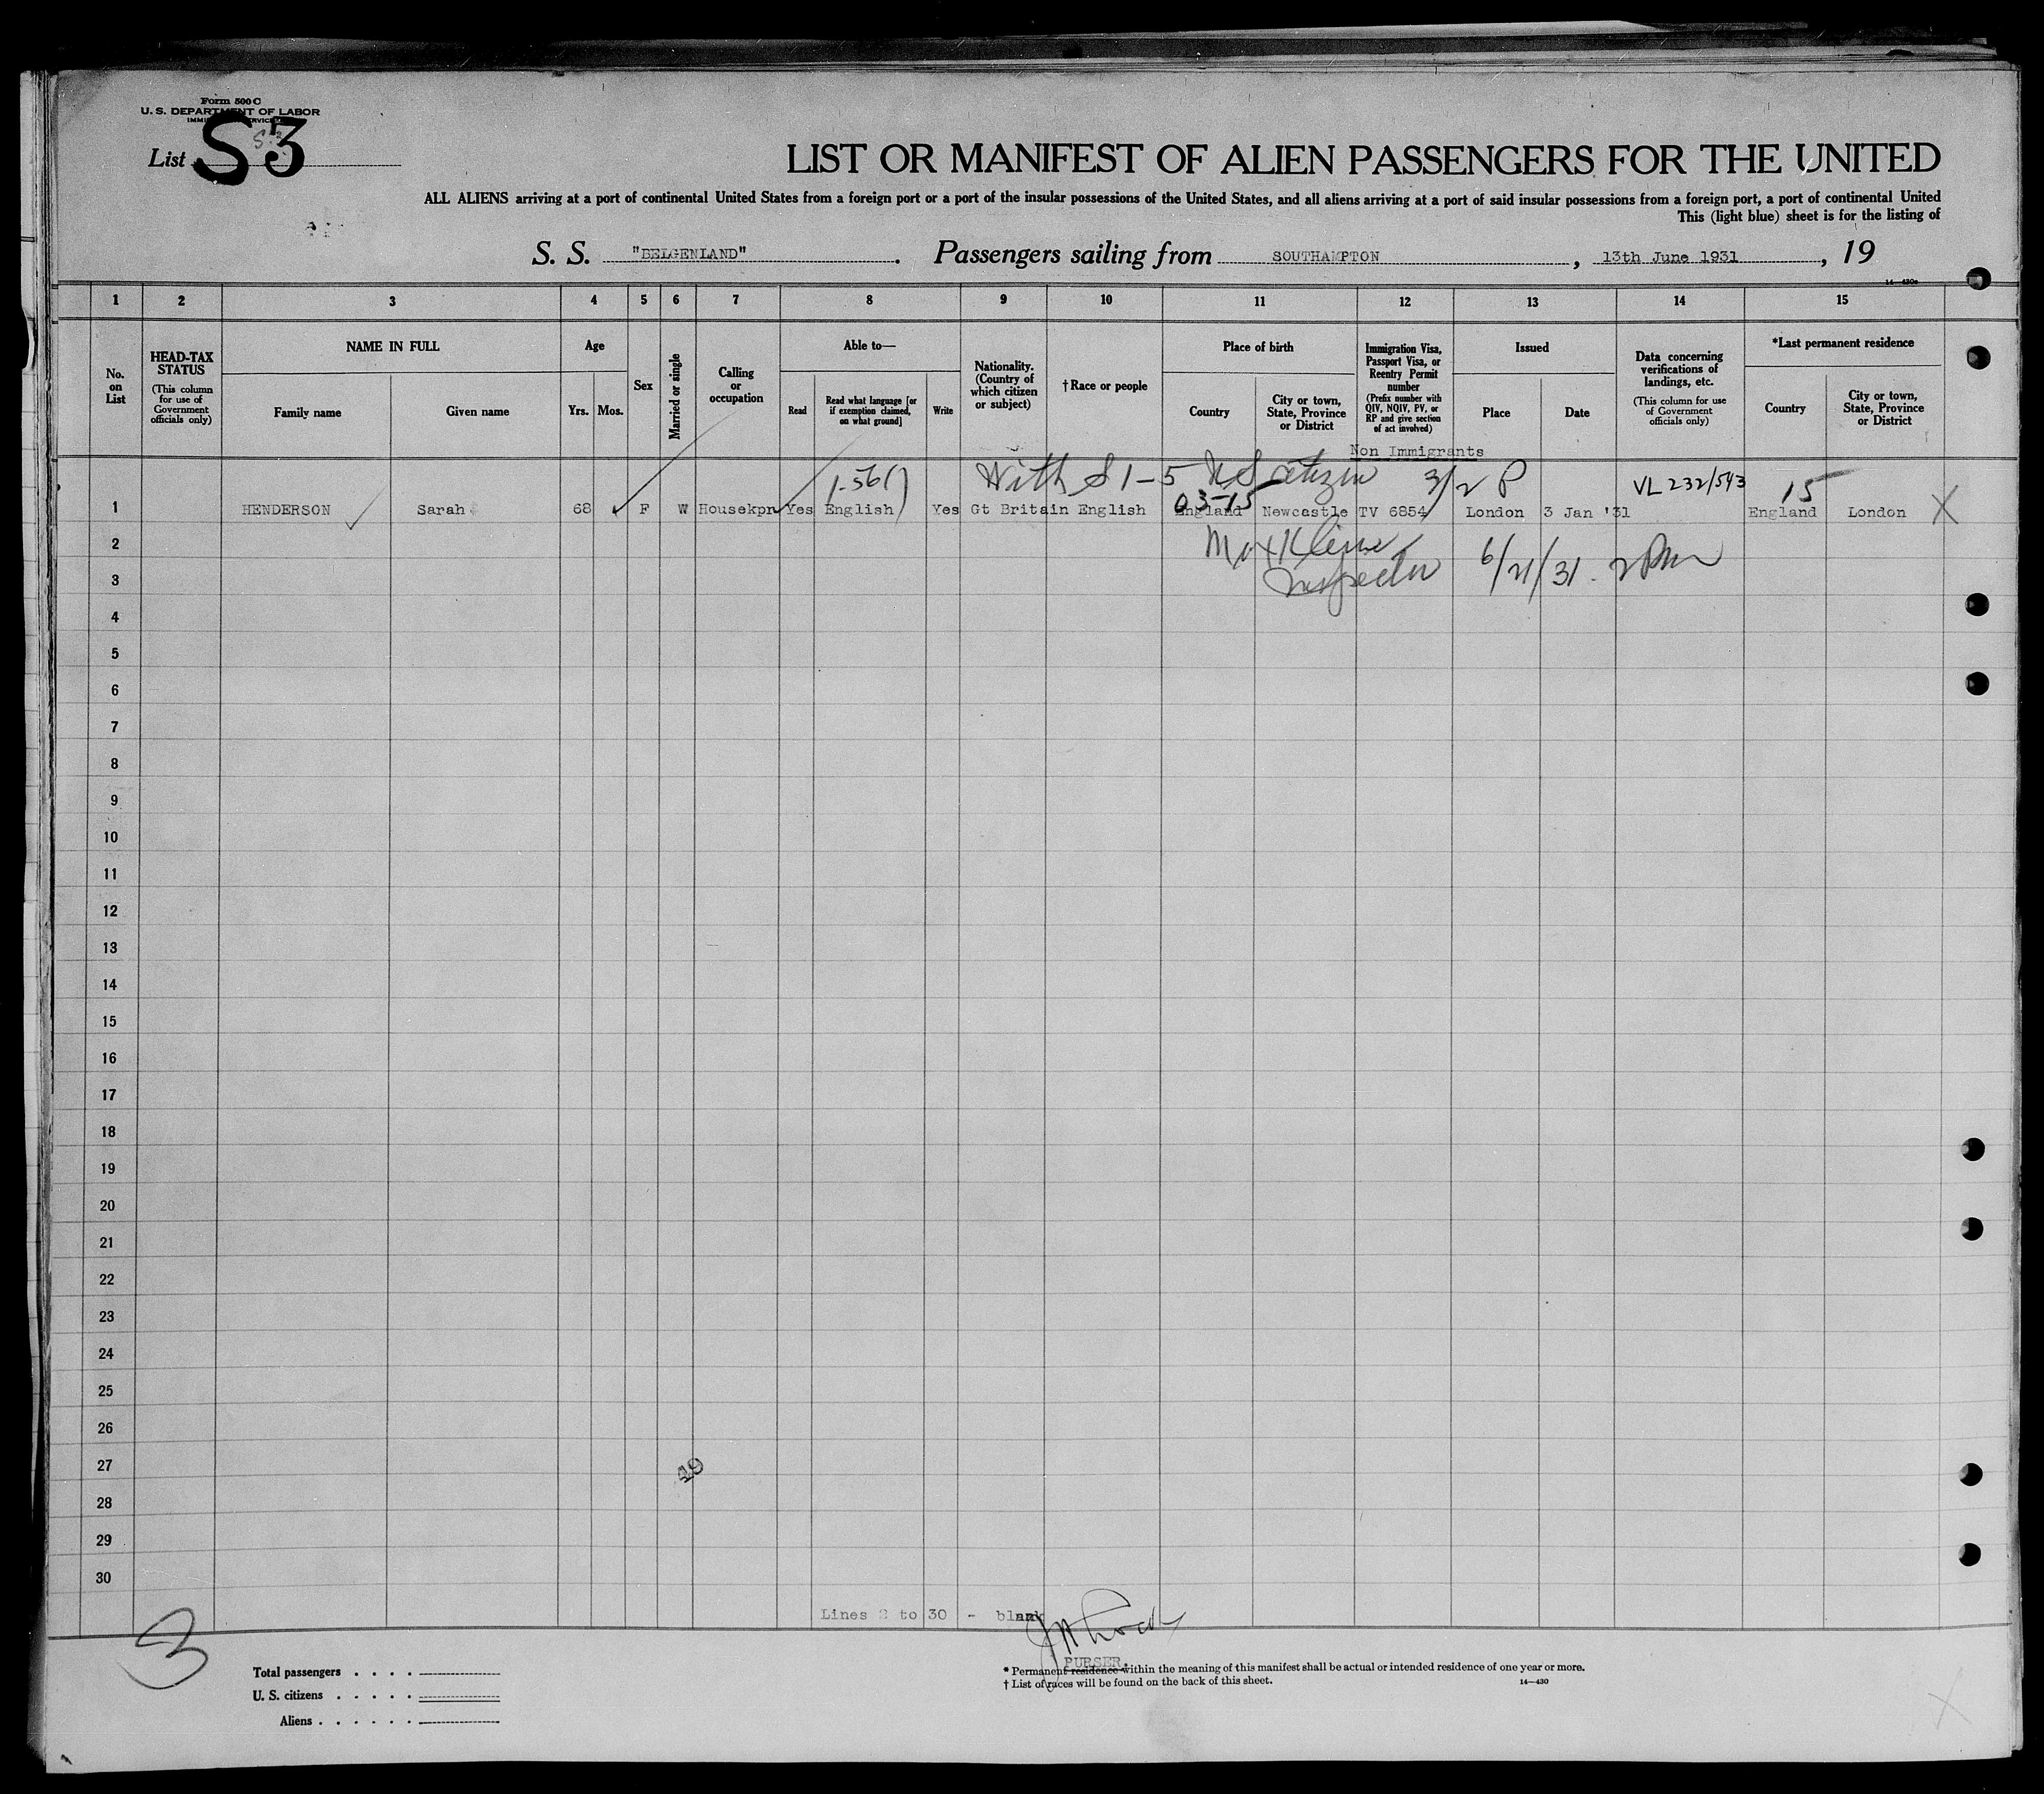 Form 500 C
U. S. DEPARTMENT OF LABOR
List S3
LIST OR MANIFEST OF ALIEN PASSENGERS FOR THE UNITED
ALL ALIENS arriving at a port of continental United States from a foreign port or a port of the insular possessions of the United States, and all aliens arriving at a port of said insular possessions from a foreign port, a port of continental United
This (light blue) sheet is for the listing of
S. S. "BELGENLAND". Passengers sailing from SOUTHAMPTON, 13th June 1931, 19
14—430a
1 2 3 4 5 6 7 8 9 10 11 12 13 14 15
No. on List
HEAD-TAX STATUS (This column for use of Government officials only)
NAME IN FULL
Family name Given name
Age
Yrs. Mos.
Sex
Married or single
Calling or occupation
Able to—
Read Read what language [or if exemption claimed, on what ground] Write
Nationality. (Country of which citizen or subject)
†Race or people
Place of birth
Country City or town, State, Province or District
Immigration Visa, Passport Visa, or Reentry Permit number (Prefix number with QIV, NQIV, PV, or RP and give section of act involved)
Issued
Place Date
Data concerning verifications of landings, etc. (This column for use of Government officials only)
*Last permanent residence
Country City or town, State, Province or District
Non Immigrants
With S1-5 US citizen 3/2 P VL 232/543 15
03-15
1 HENDERSON Sarah 68 F W Housekpr Yes English Yes Gt Britain English England Newcastle TV 6854 London 3 Jan '31 England London X
2
Inspector 6/21/31. 2 Pm
3
4
5
6
7
8
9
10
11
12
13
14
15
16
17
18
19
20
21
22
23
24
25
26
27
28
29
30
Lines 2 to 30 - blank
3
PURSER.
Total passengers . . . .
U. S. citizens . . . . .
Aliens . . . . . .
* Permanent residence within the meaning of this manifest shall be actual or intended residence of one year or more.
† List of races will be found on the back of this sheet.
14—430
X